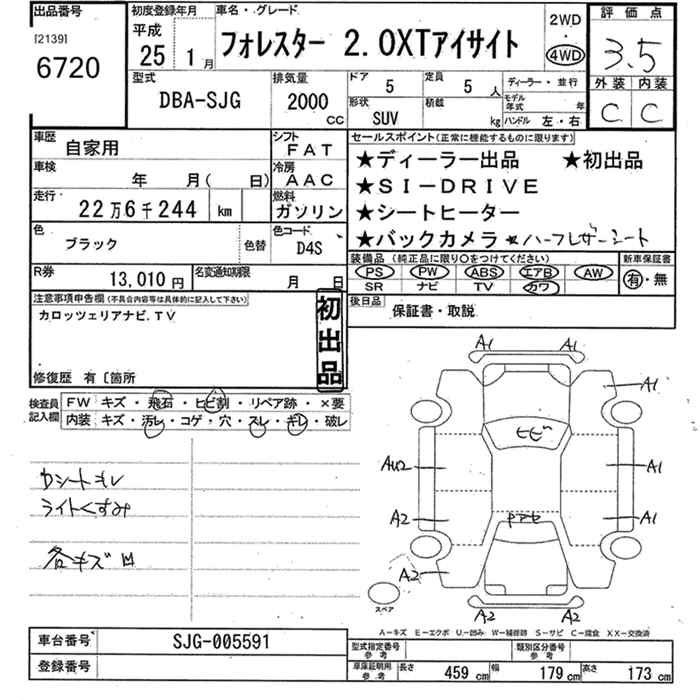 出品番号 初度登録年月 車名・グレード 2WD 評価点
[2139] 平成 フォレスター 2.0XTアイサイト 4WD 3.5
6720 25 1月
型式 排気量 ドア 定員 ディーラー・並行 外装 内装
DBA-SJG 2000 cc 5 5人 モデル年式 年 C C
形状 積載 ハンドル 左・右
SUV kg
車歴 シフト セールスポイント(正常に機能するものに限ります)
自家用 FAT ★ディーラー出品 ★初出品
車検 冷房 ★SI-DRIVE
年 月( 日) AAC ★シートヒーター
走行 燃料 ★バックカメラ ★ハーフレザーシート
22万6千244 km ガソリン
色 色替 色コード 装備品(純正品に限り○をつけてください) 新車保証書
ブラック D4S PS PW ABS エアB AW 有・無
SR ナビ TV カワ
R券 名変通知期限 後日品
13,010円 月 日 保証書・取説
注意事項申告欄(不具合内容等は具体的に記入して下さい) 初出品
カロッツェリアナビ.TV
修復歴 有〔箇所
検査員記入欄 FW キズ・飛石・ヒビ割・リペア跡・×要
内装 キズ・汚レ・コゲ・穴・スレ・キレ・破レ
シートキレ
ライトくすみ
各キズ凹
A1 A1
A1
ヒビ
AU2 A1
A2 Pアセ A1
A2
スペア
A2 A2
A-キズ E-エクボ U-凹み W-補修跡 S-サビ C-腐食 XX-交換済
車台番号 SJG-005591 型式指定番号 参考 類別区分番号 参考
登録番号 車庫証明用 参考 長さ 459cm 幅 179cm 高さ 173cm